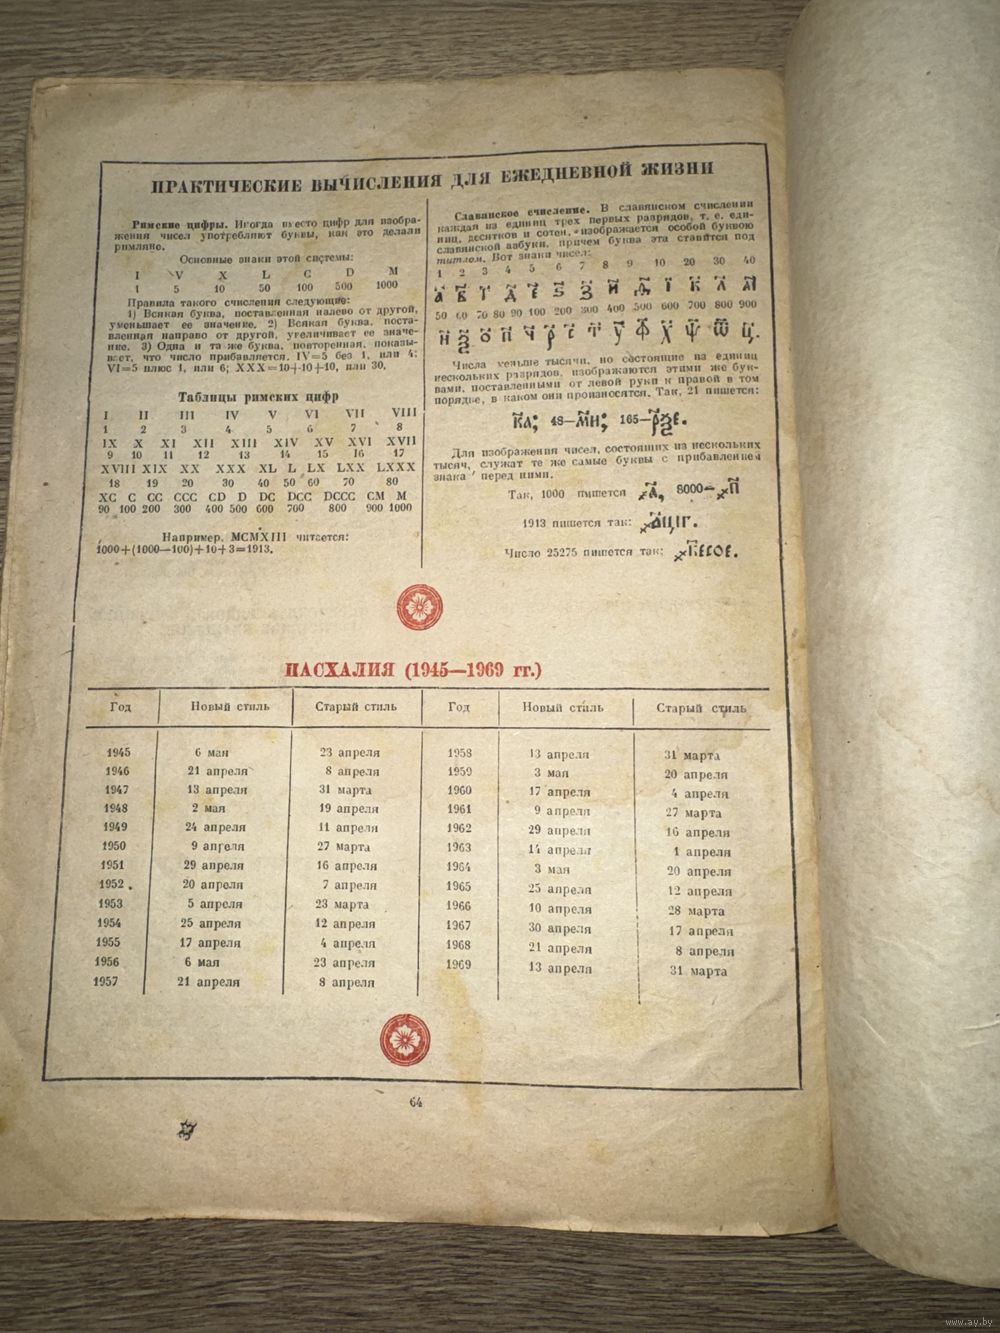 ПРАКТИЧЕСКИЕ ВЫЧИСЛЕНИЯ ДЛЯ ЕЖЕДНЕВНОЙ ЖИЗНИ
Римские цифры. Иногда вместо цифр для изобра-
жения чисел употребляют буквы, как это делали
римляне.
Основные знаки этой системы:
I V X L C D M
1 5 10 50 100 500 1000
Правила такого счисления следующие:
1) Всякая буква, поставленная налево от другой,
уменьшает ее значение. 2) Всякая буква, поста-
вленная направо от другой, увеличивает ее значе-
ние. 3) Одна и та же буква, повторенная, показы-
вает, что число прибавляется. IV=5 без 1, или 4;
VI=5 плюс 1, или 6; XXX=10+10+10, или 30.
Таблицы римских цифр
I II III IV V VI VII VIII
1 2 3 4 5 6 7 8
IX X XI XII XIII XIV XV XVI XVII
9 10 11 12 13 14 15 16 17
XVIII XIX XX XXX XL L LX LXX LXXX
18 19 20 30 40 50 60 70 80
XC C CC CCC CD D DC DCC DCCC CM M
90 100 200 300 400 500 600 700 800 900 1000
Например, MCMXIII читается:
1000+(1000—100)+10+3=1913.
Славянское счисление. В славянском счислении
каждая из единиц трех первых разрядов, т. е. еди-
ниц, десятков и сотен, изображается особой буквою
славянской азбуки, причем буква эта ставится под
титлом. Вот знаки чисел:
1 2 3 4 5 6 7 8 9 10 20 30 40
а҃ в҃ г҃ д҃ є҃ ѕ҃ з҃ и҃ ѳ҃ і҃ к҃ л҃ м҃
50 60 70 80 90 100 200 300 400 500 600 700 800 900
н҃ ѯ҃ о҃ п҃ ч҃ р҃ с҃ т҃ у҃ ф҃ х҃ ѱ҃ ѿ҃ ц҃.
Числа меньше тысячи, но состоящие из единиц
нескольких разрядов, изображаются этими же бук-
вами, поставленными от левой руки к правой в том
порядке, в каком они произносятся. Так, 21 пишется:
к҃а; 48—м҃и; 165—рѯ҃е.
Для изображения чисел, состоящих из нескольких
тысяч, служат те же самые буквы с прибавлением
знака ҂ перед ними.
Так, 1000 пишется ҂а҃, 8000—҂и҃
1913 пишется так: ҂аці҃г.
Число 25275 пишется так: ҂к҃есое.
ПАСХАЛИЯ (1945—1969 гг.)
Год Новый стиль Старый стиль Год Новый стиль Старый стиль
1945 6 мая 23 апреля 1958 13 апреля 31 марта
1946 21 апреля 8 апреля 1959 3 мая 20 апреля
1947 13 апреля 31 марта 1960 17 апреля 4 апреля
1948 2 мая 19 апреля 1961 9 апреля 27 марта
1949 24 апреля 11 апреля 1962 29 апреля 16 апреля
1950 9 апреля 27 марта 1963 14 апреля 1 апреля
1951 29 апреля 16 апреля 1964 3 мая 20 апреля
1952 20 апреля 7 апреля 1965 25 апреля 12 апреля
1953 5 апреля 23 марта 1966 10 апреля 28 марта
1954 25 апреля 12 апреля 1967 30 апреля 17 апреля
1955 17 апреля 4 апреля 1968 21 апреля 8 апреля
1956 6 мая 23 апреля 1969 13 апреля 31 марта
1957 21 апреля 8 апреля
64
www.ay.by